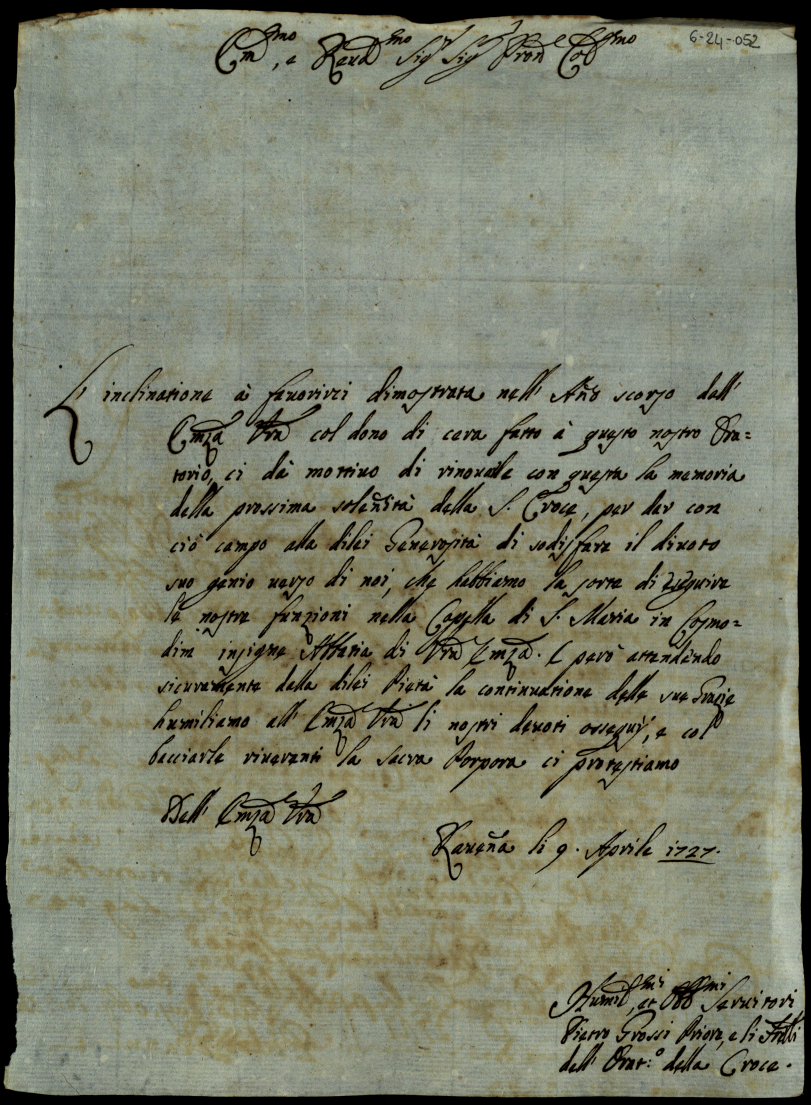 6-24-052
Em̃mo, e Reud̃mo Sigr Sigr Pron̄e Col̃mo
L'inclinatione à fauorirci dimostrata nell' Año scorso dall'
Emza Vrã col dono di cera fatto à questo nostro Ora=
torio, ci dà mottiuo di rinouarle con questa la memoria
della prossima soleñità della S. Croce, per dar con
ciò campo alla dilei Generosità di sodisfare il diuoto
suo genio uerso di noi, che habbiamo la sorte di eseguire
le nostre funzioni nella Cappella di S. Maria in Cosmo=
dim insigne Abbatia di Vrã Emza. E però attendendo
sicuramente dalla dilei Pietà la continuatione delle sue Grazie
humiliamo all' Emza Vrã li nostri deuoti ossequij, e col
bacciarle riuerenti la Sacra Porpora ci protestiamo
Dell' Emza Vrã
Raueña li 9. Aprile 1727.
Humil̃mi, et Obb̃mi Seruitori
Pietro Grossi Priore, e li Frãlli
dell' Orat:o della Croce.